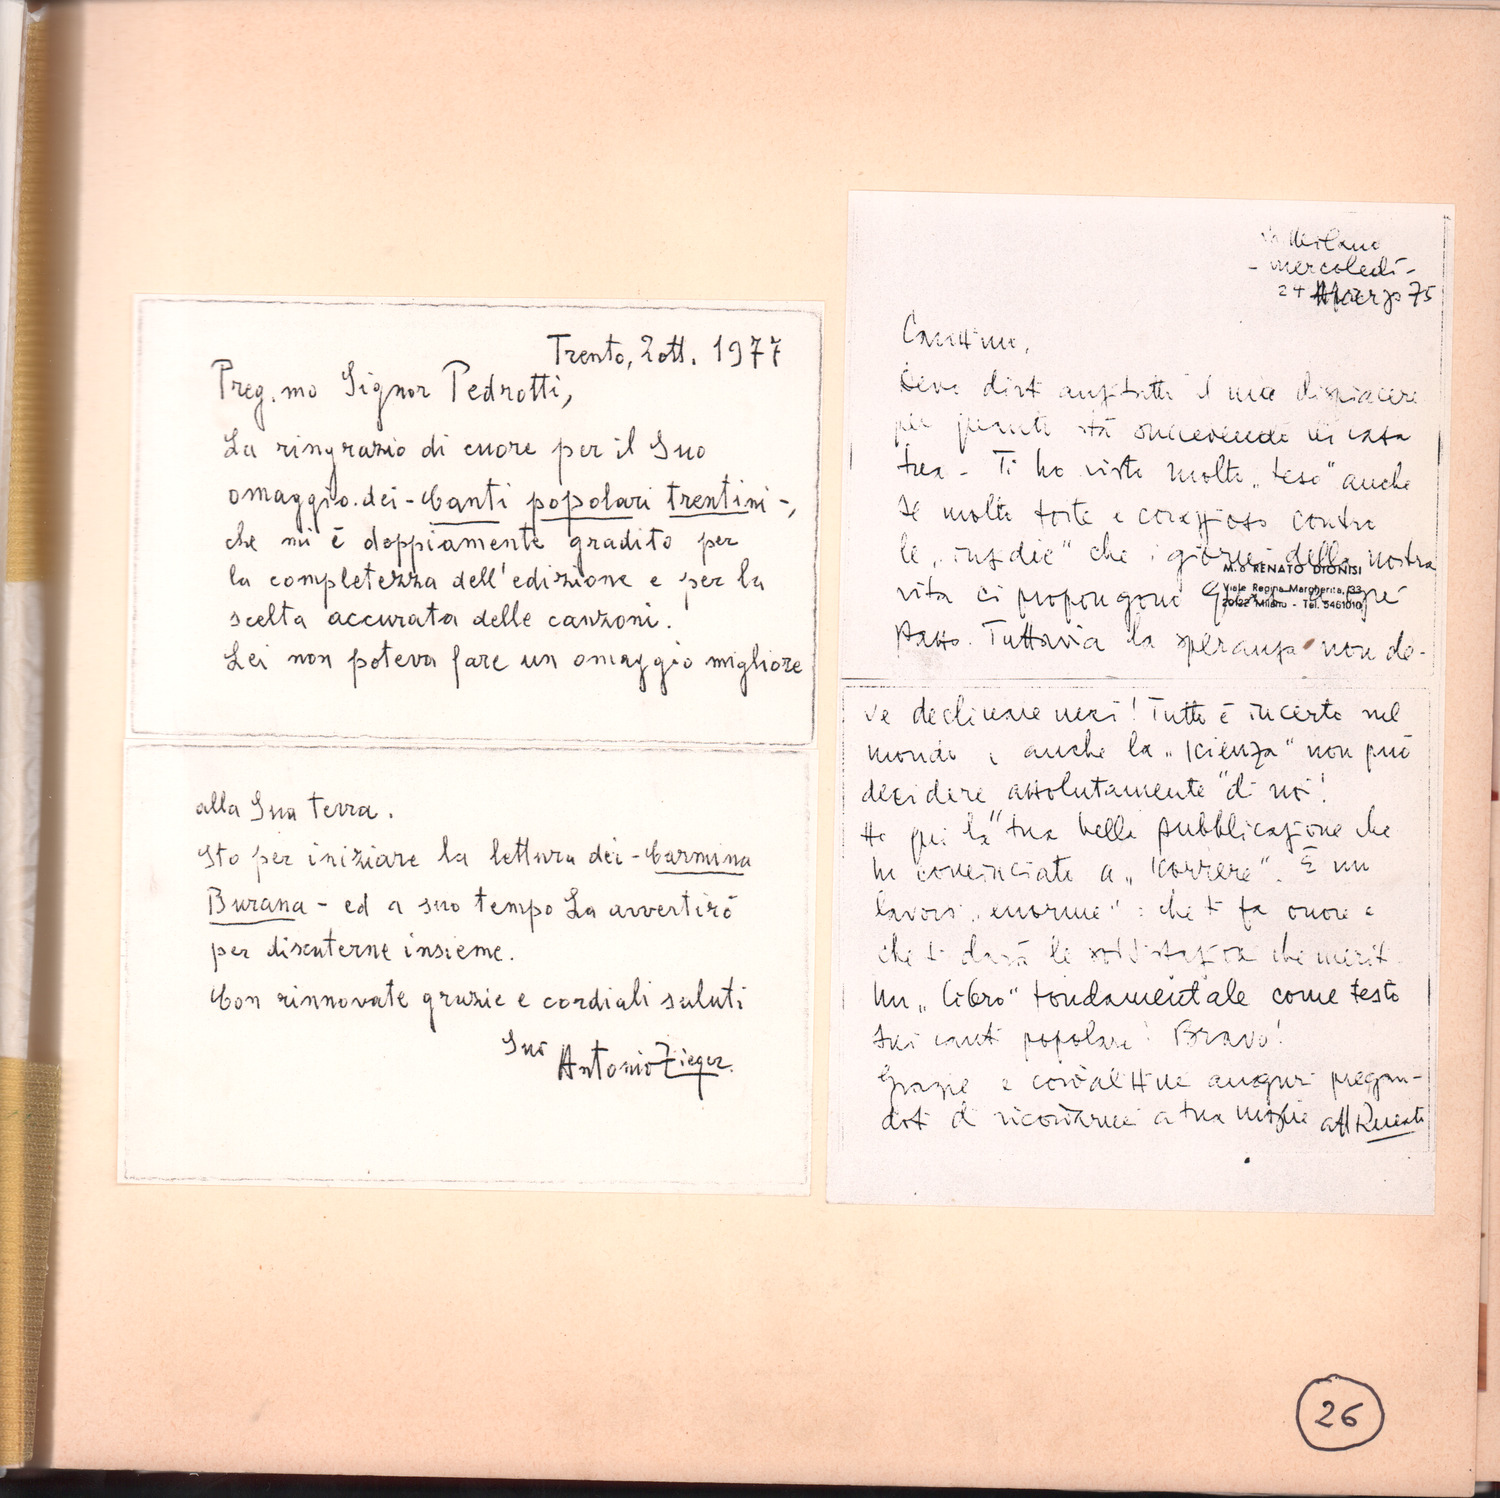 Trento, 2 ott. 1977
Preg.mo Signor Pedrotti,
La ringrazio di cuore per il Suo
omaggio dei - Canti popolari trentini -,
che mi è doppiamente gradito per
la completezza dell'edizione e per la
scelta accurata delle canzoni.
Lei non poteva fare un omaggio migliore
alla Sua terra.
Sto per iniziare la lettura dei - Carmina
Burana - ed a suo tempo La avvertirò
per discuterne insieme.
Con rinnovate grazie e cordiali saluti
Suo Antonio Zieger.
Milano
- mercoledì -
24 Marzo 75
Carissimo,
Devo dirti anzitutto il mio dispiacere
per quanto sta succedendo in casa
tua - Ti ho visto molto „teso" anche
se molto forte e coraggioso contro
le „insidie" che i giorni della nostra
M.o RENATO DIONISI
Viale Regina Margherita,
20122 Milano - Tel. 5461010
vita ci propongono
passo. Tuttavia la speranza non de-
ve declinare mai! Tutto è incerto nel
mondo e anche la „scienza" non può
decidere assolutamente "di noi"!
Ho qui la tua bella pubblicazione che
ho cominciato a „scorrere". È un
lavoro „enorme": che ti fa onore e
che ti darà le soddisfazioni che meriti.
Un „libro" fondamentale come testo
sui canti popolari! Bravo!
Grazie e cordialissimi auguri pregan-
doti di ricordarmi a tua moglie aff Renato
26